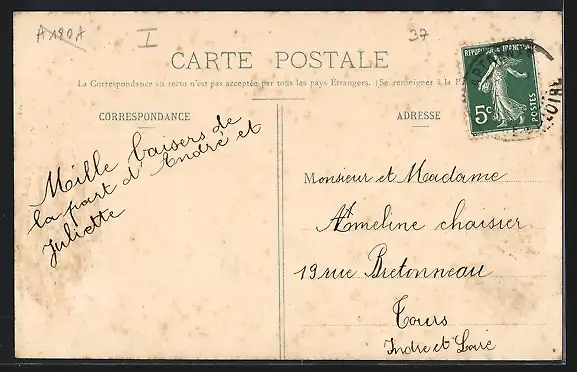 A190A
I
37
CARTE POSTALE
La Correspondance au recto n'est pas acceptée par tous les pays Étrangers. (Se renseigner à la
CORRESPONDANCE
ADRESSE
RÉPUBLIQUE FRANÇAISE
5c
POSTES
LOIRE
Mille baisers de
la part d'André et
Juliette
Monsieur et Madame
Ameline chaisier
19 rue Bretonneau
Tours
Indre et Loire